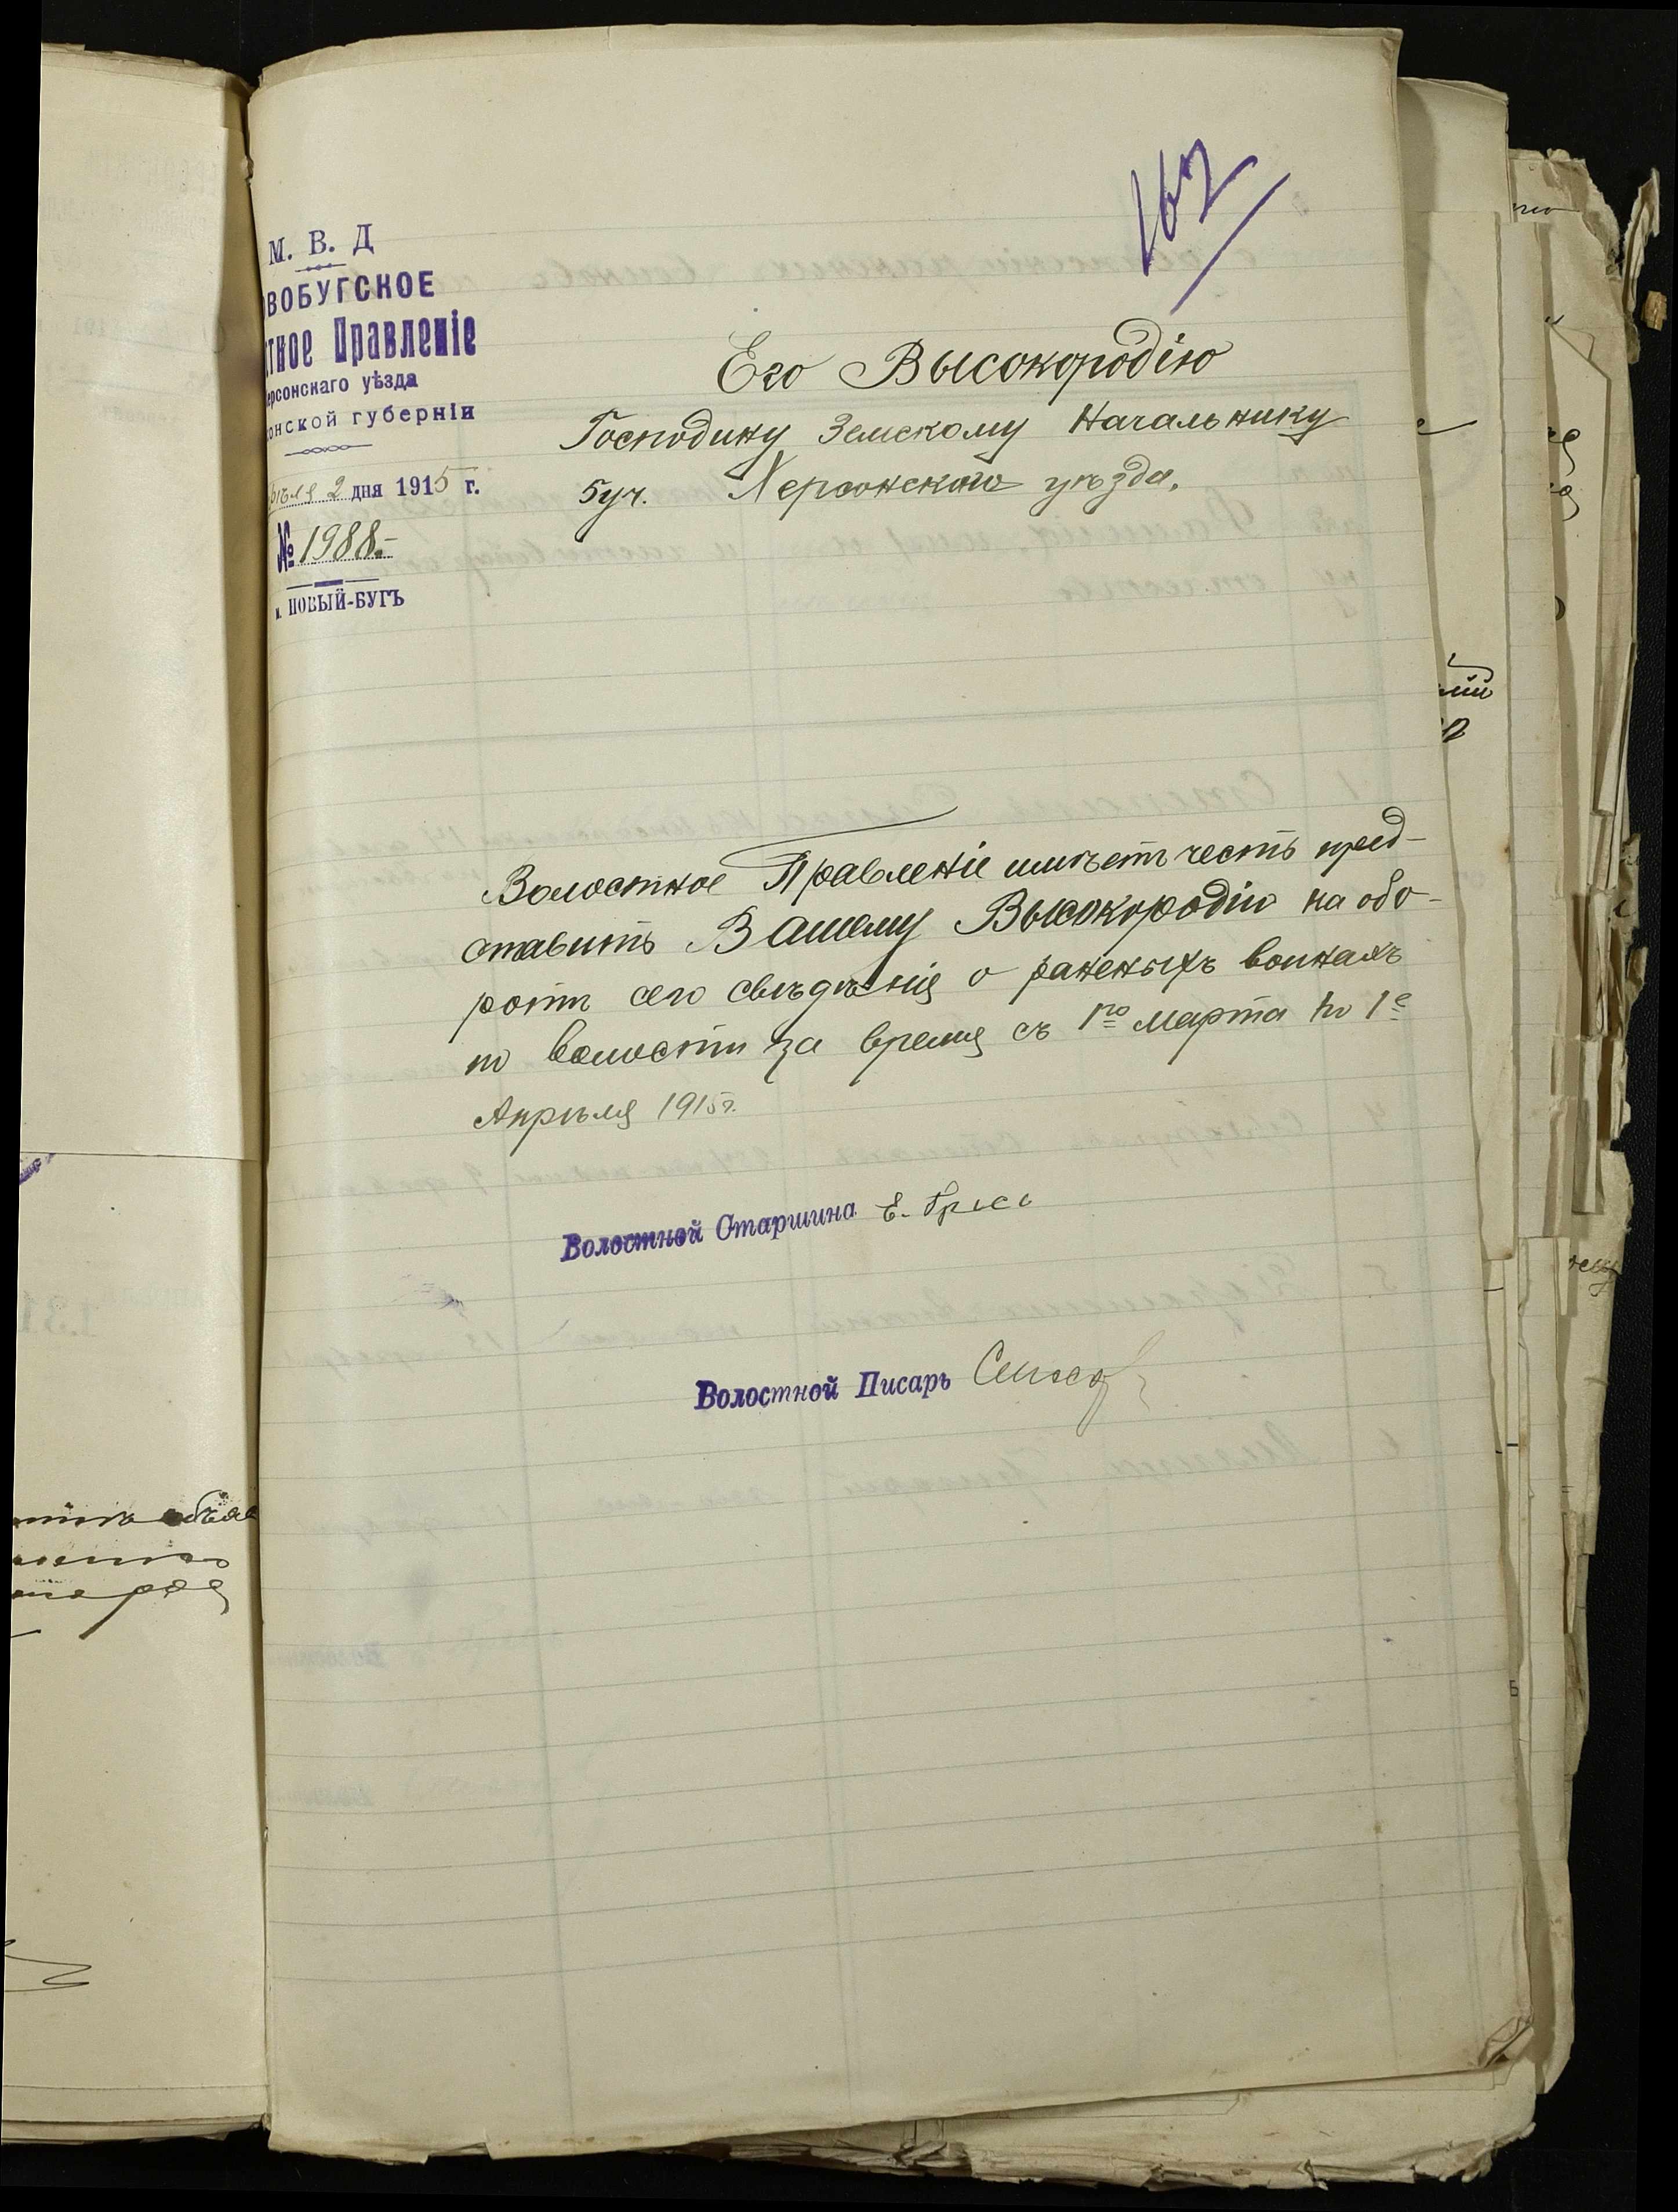 167
М. В. Д
ВОБУГСКОЕ
тное Правленіе
ерсонскаго уѣзда
онской губерніи
ѣля 2 дня 1915 г.
№ 1988.
НОВЫЙ-БУГЪ
Его Высокородію
Господину Земскому Начальнику
5 уч. Херсонскаго уѣзда.
Волостное Правленіе имѣетъ честь пред-
ставить Вашему Высокородію на обо-
ротѣ сего свѣдѣнія о раненыхъ воинахъ
по волости за время съ 1го Марта по 1е
Апрѣля 1915 г.
Волостной Старшина Е.
Волостной Писарь